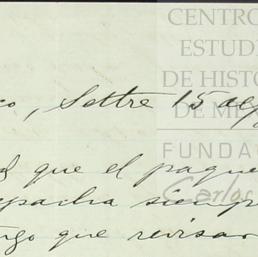 CENTRO
ESTUDI
DE HISTO
DE MÉ
FUNDA
Carlos
co, Settre 15 de
que el paque
spacha siemp
ngo que revisar